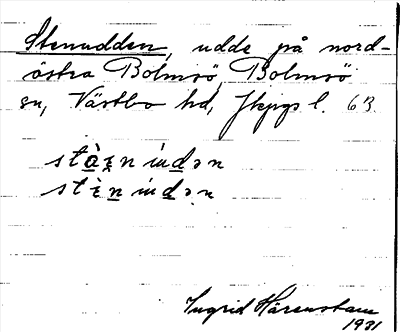 Stenudden, udde på nord-
östra Bolmsö, Bolmsö
sn, Västbo hd, Jkpgs l. 63
Ingrid Härenstam
1931